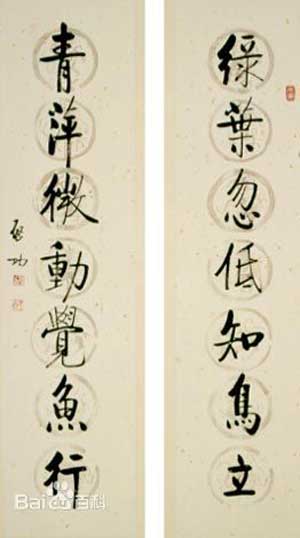 綠葉忽低知鳥立
青萍微動覺魚行
啓功
Bai百科